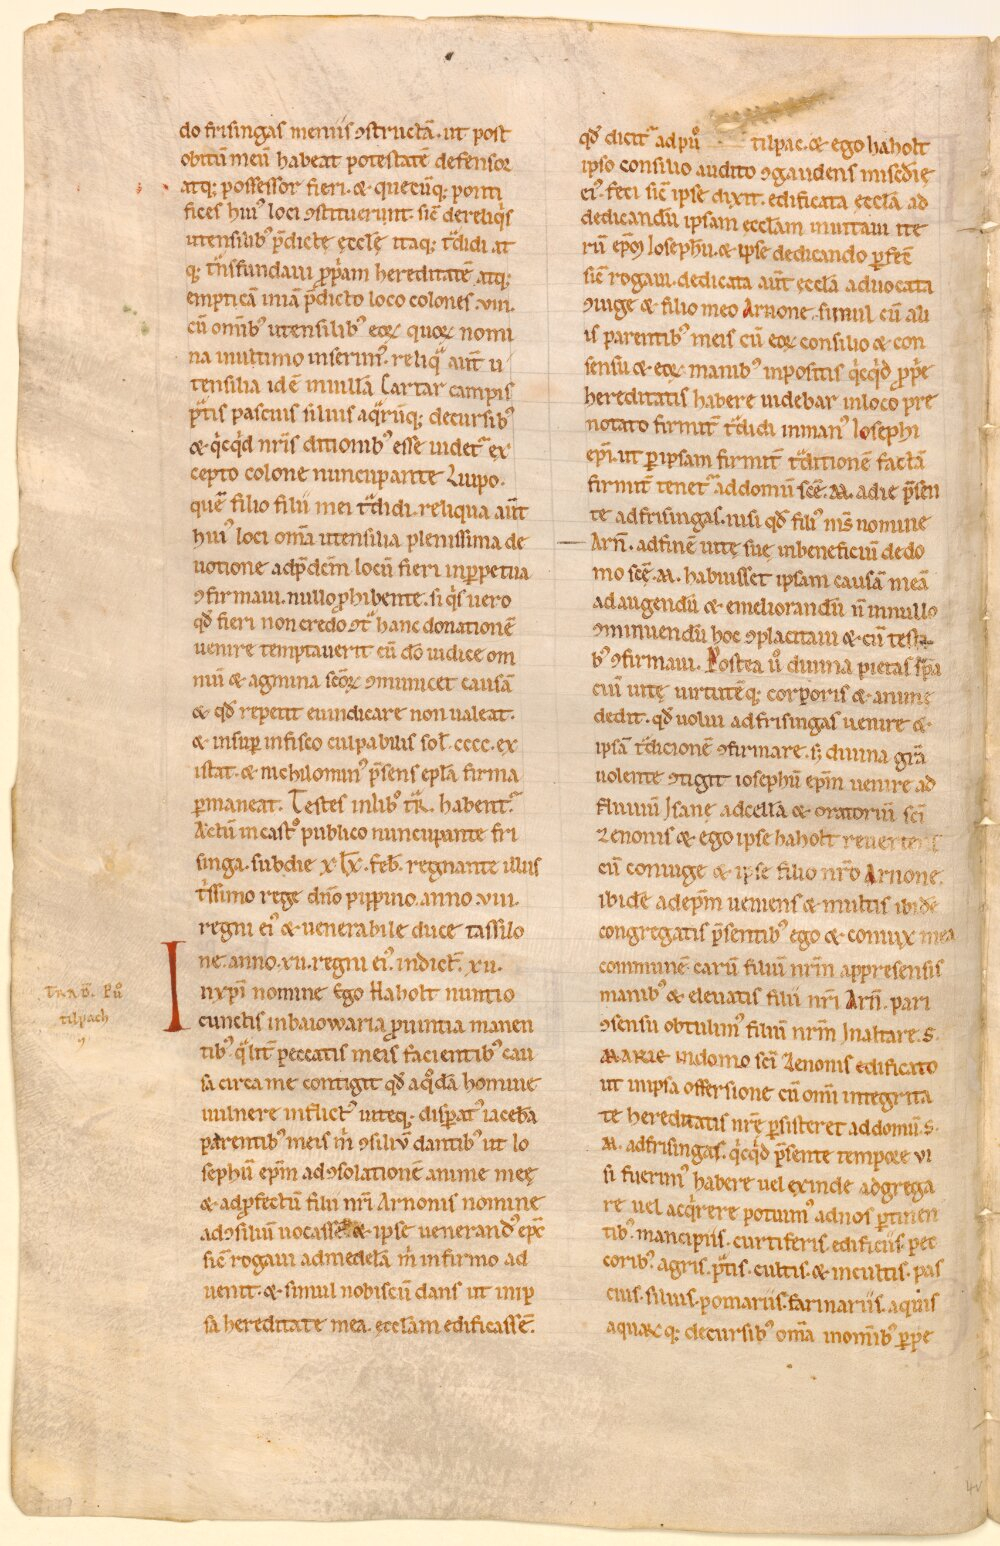 do frisingas meniis ꝯstructā. ut post
obitū meū habeat potestatē defensor
atq; possessor fieri. & quecūq; ponti
fices hui᾿ loci ꝯstituerunt. sic̄ dereliq̇s
utensilib᾿ p̄dicte ęcclę itaq; t̄didi at
q; t̄nsfundaui ꝓp̄am hereditatē atq;
empticā in iā p̄dicto loco colones .VIII.
cū om̄ib᾿ utensilib᾿ eoꝝ quoꝝ nomi
na in ultimo inserim᾿. reliq̄ aut̄ u
tensilia idē in uillā Cartar campis
p̄tis pascuis siluis aq̄rūq; decursib᾿
& q̇cq̇d nr̄is ditionib᾿ esse uidet᾿ ex
cepto colone nuncupante Luipo.
quē filio filii mei t̄didi. reliqua aut̄
hui᾿ loci om̄a utensilia plenissima de
uotione ad p̄dc̄m locū fieri in ꝑpetua
ꝯfirmaui. nullo ꝓhibente. si q̇s uero
qd̄ fieri non credo ꝯt᾿ hanc donationē
uenire temptauerit cū dō iudice om
niū & agmina scōꝝ ꝯmunicet causā
& qd̄ repetit euindicare non ualeat.
& insuꝑ in fisco culpabilis sol. cccc. ex
istat. & nichilomin᾿ p̄sens epl̄a firma
ꝑmaneat. Testes in lib᾿ tr̄. habent᾿
Actū in castō publico nuncupante fri
singa. sub die x kl̄. feb̄. regnante illus
trissimo rege dn̄o pippino. anno .VIII.
regni ei᾿ & uenerabile duce tassilo
ne. anno .XII. regni ei᾿. indict̄. XII.
In xpi nomine Ego Haholt nuntio
cunctis in baiowaria ꝓuintia manen
tib᾿ q̄lit̄ peccatis meis facientib᾿ cau
sa circa me contigit qd̄ a q̇dā homine
uulnere inflict᾿ uiteq; disperat᾿ iacebā
parentib᾿ meis m̄ ꝯsiliū dantib᾿ ut Io
sephū ep̄m ad ꝯsolationē anime meę
& ad ꝓfectū filii nr̄i Arnonis nomine
ad ꝯsiliū uocassē & ipse uenerand᾿ epc̄
sic̄ rogaui ad medelā m̄ infirmo ad
uenit. & simul nobiscū dans ut in ip
sa hereditate mea. ecclesiam edificassē.
Trad̄. Pů
tilpach
qd̄ dicit᾿ ad pů tilpac. & ego haholt
ipso consilio audito ꝯgaudens misc̄dię
ei᾿ feci sic̄ ipse dixit. edificata ęcclā ad
dedicandū ipsam ęcclam inuitaui ite
rū ep̄ō Iosephū. & ipse dedicando ꝑfec̄
sic̄ rogaui. dedicata aut̄ ęcclā aduocata
ꝯiuge & filio meo Arnone. simul cū ali
is parentib᾿ meis cū eoꝝ consilio & con
sensu & eoꝝ manib᾿ inpositis q̇cq̇d ꝓp̄e
hereditatis habere uidebar in loco pre
notato firmit̄ t̄didi in man᾿ Iosephi
ep̄i. ut ꝑ ipsam firmit̄ t̄ditionē factā
firmit̄ tenet᾿ ad domū scę̄. M. a die p̄sen
te ad frisingas. nisi qd̄ fili᾿ ms̄ nomine
Arn̄. ad finē uitę suę in beneficiū de do
mo scę̄. M. habuisset ipsam causā meā
ad augendū & emeliorandū n̄ in nullo
ꝯminuendū hoc ꝯplacitaui & cū testi
b᾿ ꝯfirmaui. Postea ů diuina pietas spā
ciū uitę uirtutēq; corporis & animę
dedit. qd̄ uolui ad frisingas uenire &
ipsā t̄dicionē ꝯfirmare. s; diuina grā
uolente ꝯtigit iosephū ep̄m uenire ad
fluuiū Isanę ad cellā & oratoriū scī
Zenonis & ego ipse haholt reuertens
cū coniuge & ipse filio nr̄o Arnone.
ibidē ad ep̄m ueniens & multis ibidē
congregatis p̄sentib᾿ ego & coniux mea
communē carū filiū nr̄m appresensis
manib᾿ & eleuatis filii nr̄i Arn̄. pari
ꝯsensu obtulim᾿ filiū nr̄m In altare. S.
MARIE in domo scī Zenonis edificato
ut in ipsa offersione cū om̄i integrita
te hereditatis nr̄ę ꝑsisteret ad domū. S.
M. ad frisingas. q̇cq̇d p̄sente tempore ui
si fuerim᾿ habere uel exinde adgrega
re uel acq̇rere potuim᾿ ad nos ꝑtinen
tib᾿. mancipiis. curtiferis. edificiis. pec
corib᾿. agris. p̄tis. cultis. & incultis. pas
cuis. siluis. pomariis. farinariis. aquis
aquarū q; decursib᾿ om̄a in om̄ib᾿ ꝑpe